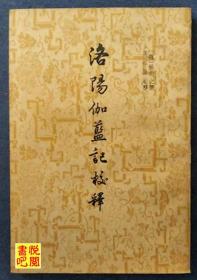 洛陽伽藍記校釋
悅閱
書吧